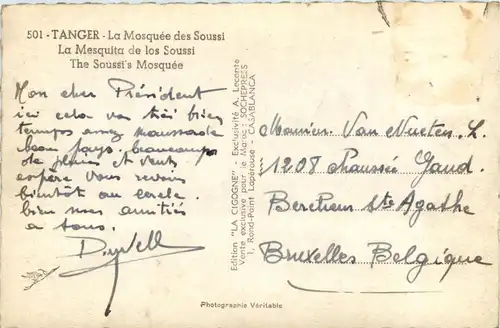 501 - TANGER - La Mosquée des Soussi
La Mesquita de los Soussi
The Soussi's Mosquée
Mon cher Président
ici cela va très bien
temps assez maussade
beau pays. beaucoup
de pluies et vents
espère vous revoir
bientôt au cercle.
bien mes amitiés
à tous.
Edition "LA CIGOGNE" - Exclusivité A. Leconte
Vente exclusive pour le Maroc : SOCHEPRESS
1, Rond-Point Lapérouse - CASABLANCA
Monsieur Van L.
1208 Chaussée Gand.
Berchem Ste Agathe
Bruxelles Belgique
Photographie Véritable